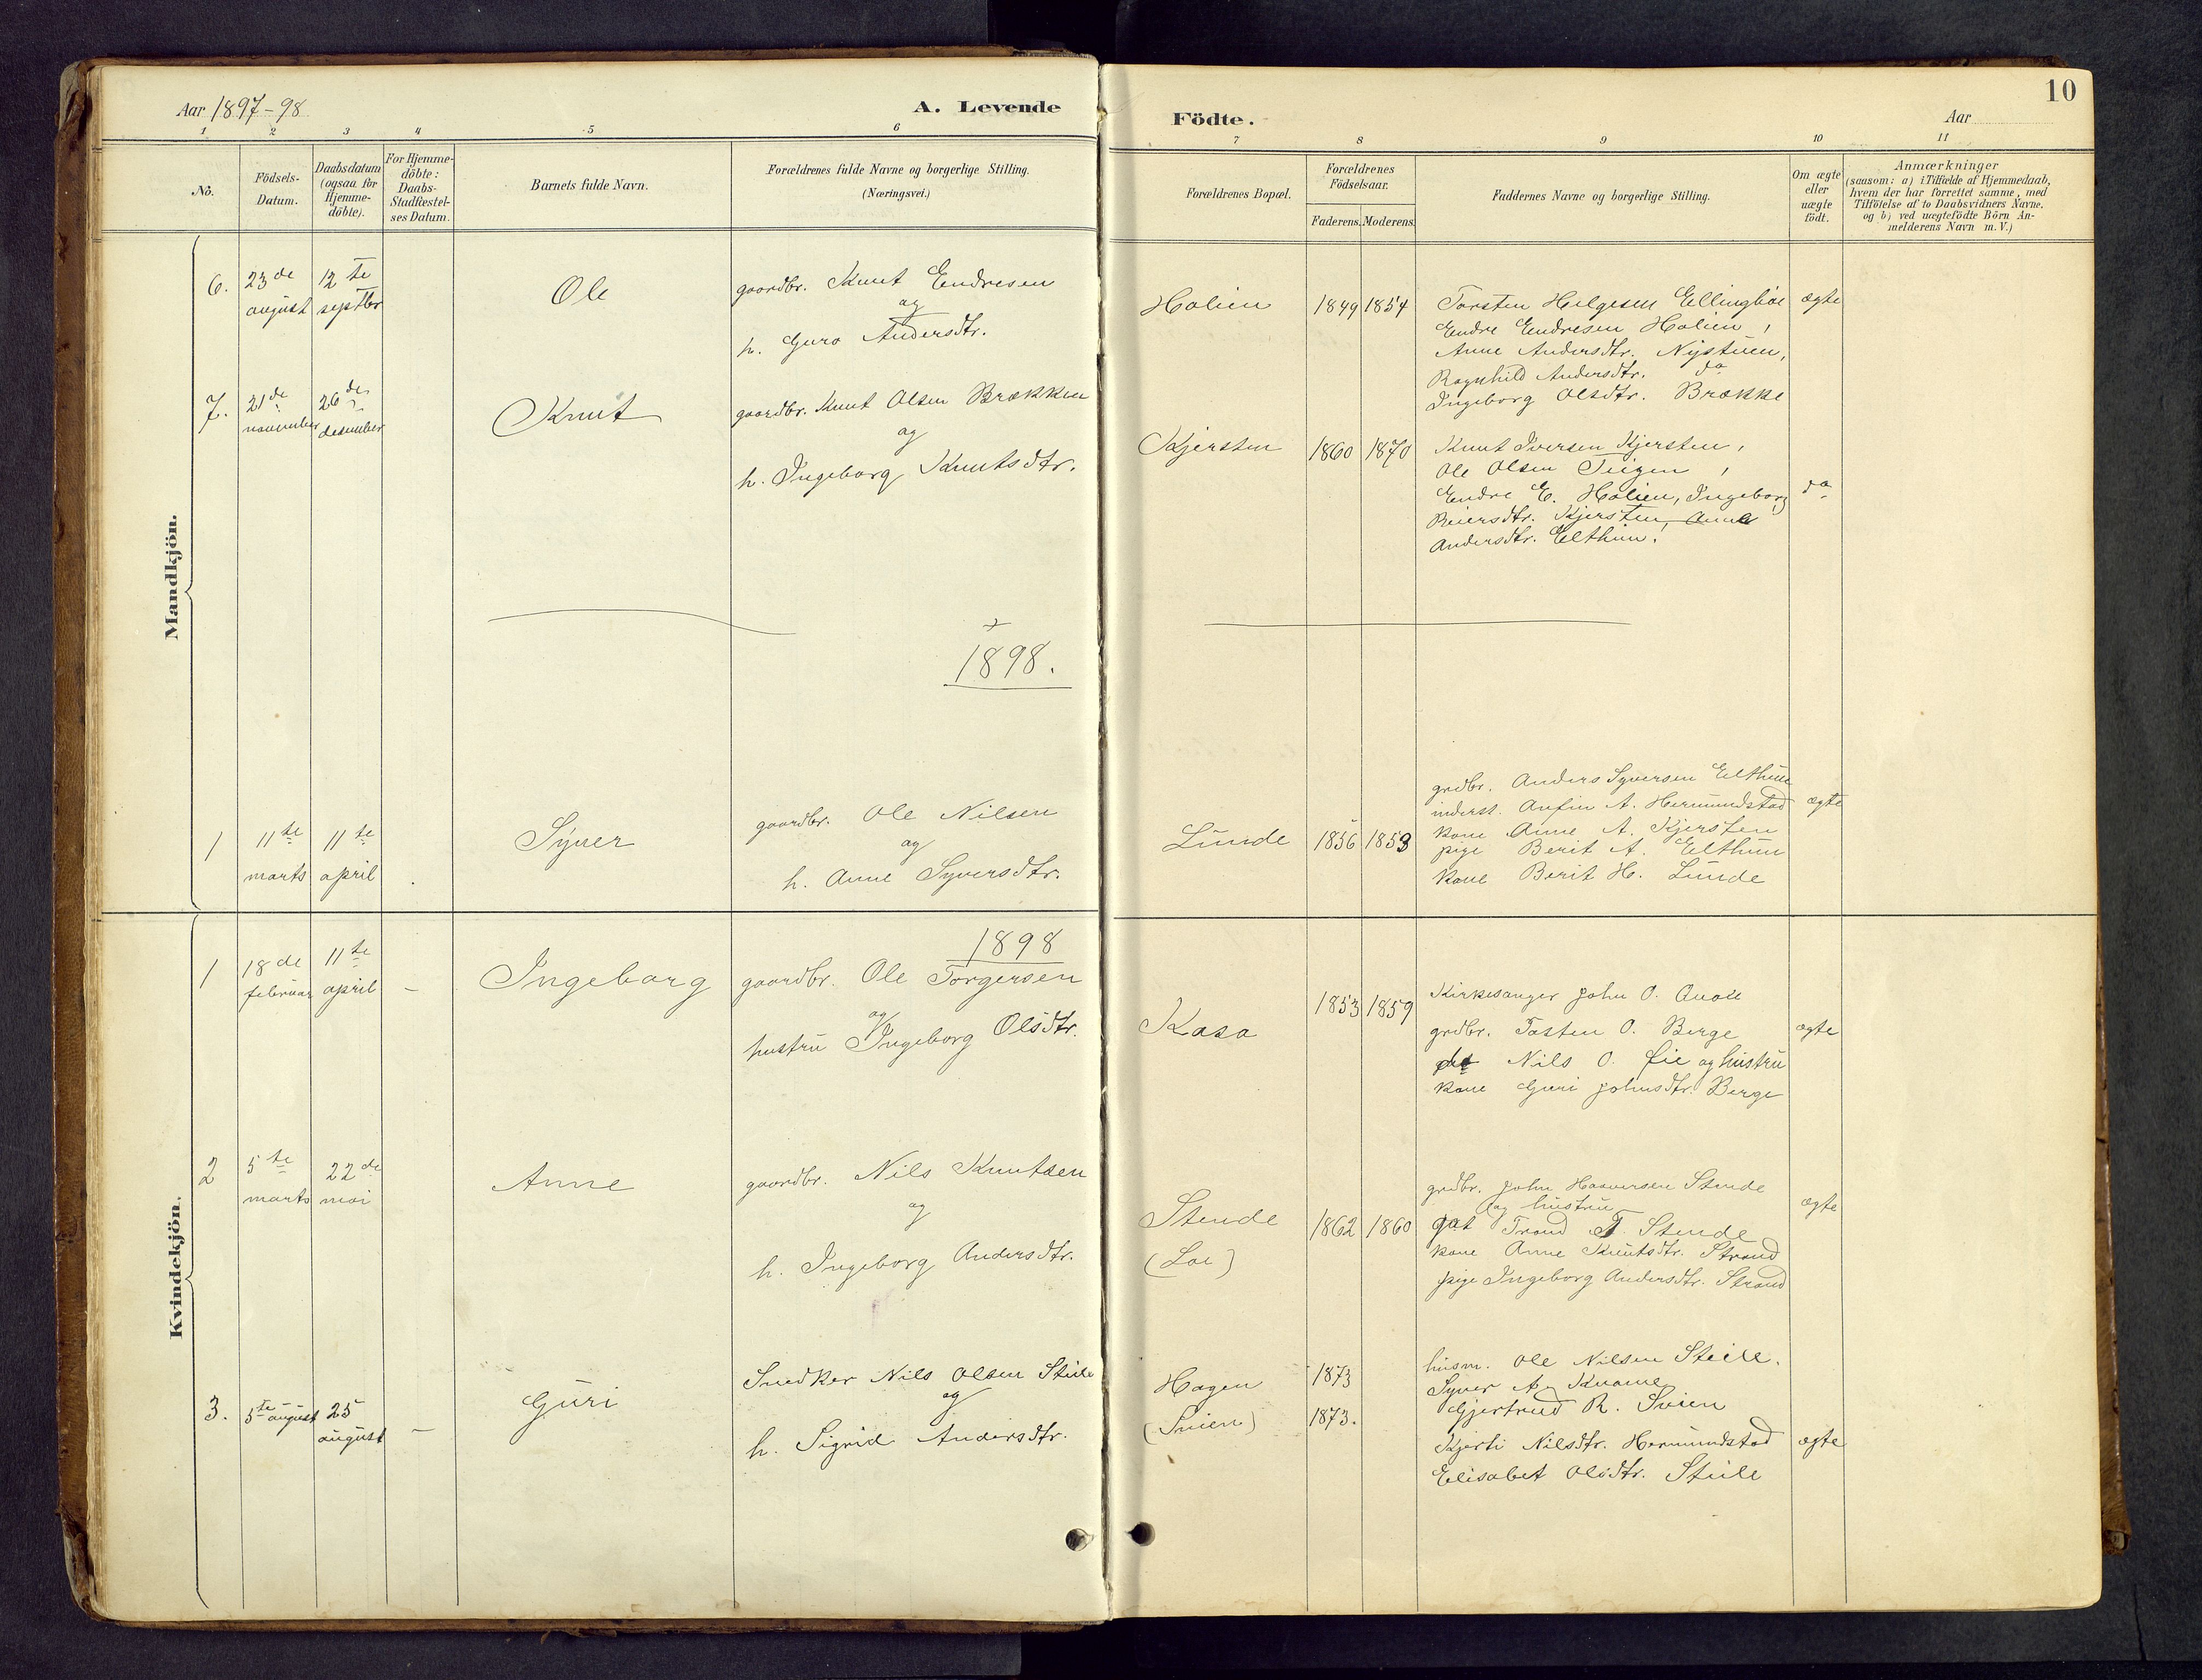 Aar 1897-98
A. Levende
Födte.
Aar
10
1 2 3 4 5 6 7 8 9 10 11
No.
Födsels-
Datum.
Daabsdatum
(ogsaa for
Hjemme-
döbte).
For Hjemme-
döbte:
Daabs-
Stadfæstel-
ses Datum.
Barnets fulde Navn.
Forældrenes fulde Navne og borgerlige Stilling.
(Næringsvei.)
Forældrenes Bopæl.
Forældrenes
Födselsaar.
Faderens. Moderens.
Faddernes Navne og borgerlige Stilling.
Om ægte
eller
uægte
födt.
Anmærkninger
(saasom: a) i Tilfælde af Hjemmedaab,
hvem der har forrettet samme, med
Tilföielse af to Daabsvidners Navne.
og b) ved uægtefödte Börn An-
melderens Navn m. V.)
Mandkjön.
6.
23de
august
12te
septbr
Ole
gaardbr. Knut Endresen
og
h. Guro Andersdtr.
Holien
1849 1854
Torsten Helgesen Ellingböe
Endre Endresen Holien,
Anne Andersdtr. Nystuen,
Ragnhild Andersdtr. do
Ingeborg Olsdtr. Brække
ægte
7.
21de
november
26de
desember
Knut
gaardbr. Knut Olsen Brækken
og
h. Ingeborg Knutsdtr.
Kjersten
1860 1870
Knut Iversen Kjersten,
Ole Olsen Teigen,
Endre E. Holien, Ingeborg
Beiersdtr. Kjersten, Anne
Andersdtr. Elthun.
do
1898.
1
11te
marts
11te
april
Syver
gaardbr. Ole Nilsen
og
h. Anne Syversdtr.
Lunde
1856 1853
grdbr. Anders Syversen Elthun
inderst. Anfin A. Hermundstad
kone Anne A. Kjersten
pige Berit A. Elthun
kone Berit H. Lunde
ægte
Kvindekjön.
1898
1
18de
februar
11te
april
-
Ingeborg
gaardbr. Ole Torgersen
og
hustru Ingeborg Olsdtr.
Kasa
1853 1859
Kirkesanger John O. Quale
grdbr. Tosten O. Berge
do Nils O. Øie og hustru
kone Guri Johnsdtr. Berge
ægte
2
5te
marts
22de
mai
Anne
gaardbr. Nils Knutsen
og
h. Ingeborg Andersdtr.
Stende
(Loe)
1862 1860
grdbr. John Haaversen Stende
og hustru
gut Trond T. Stende
kone Anne Knutsdtr. Strand
pige Ingeborg Andersdtr. Strand
ægte
3.
5te august
25
august
-
Guri
Snedker Nils Olsen Steile
og
h. Sigrid Andersdtr.
Hagen
(Svien)
1873
1873.
husm. Ole Nilsen Steile.
Syver A. Kvame
Gjertrud R. Svien
Kjersti Nilsdtr. Hermundstad
Elisabet Olsdtr. Steile
ægte